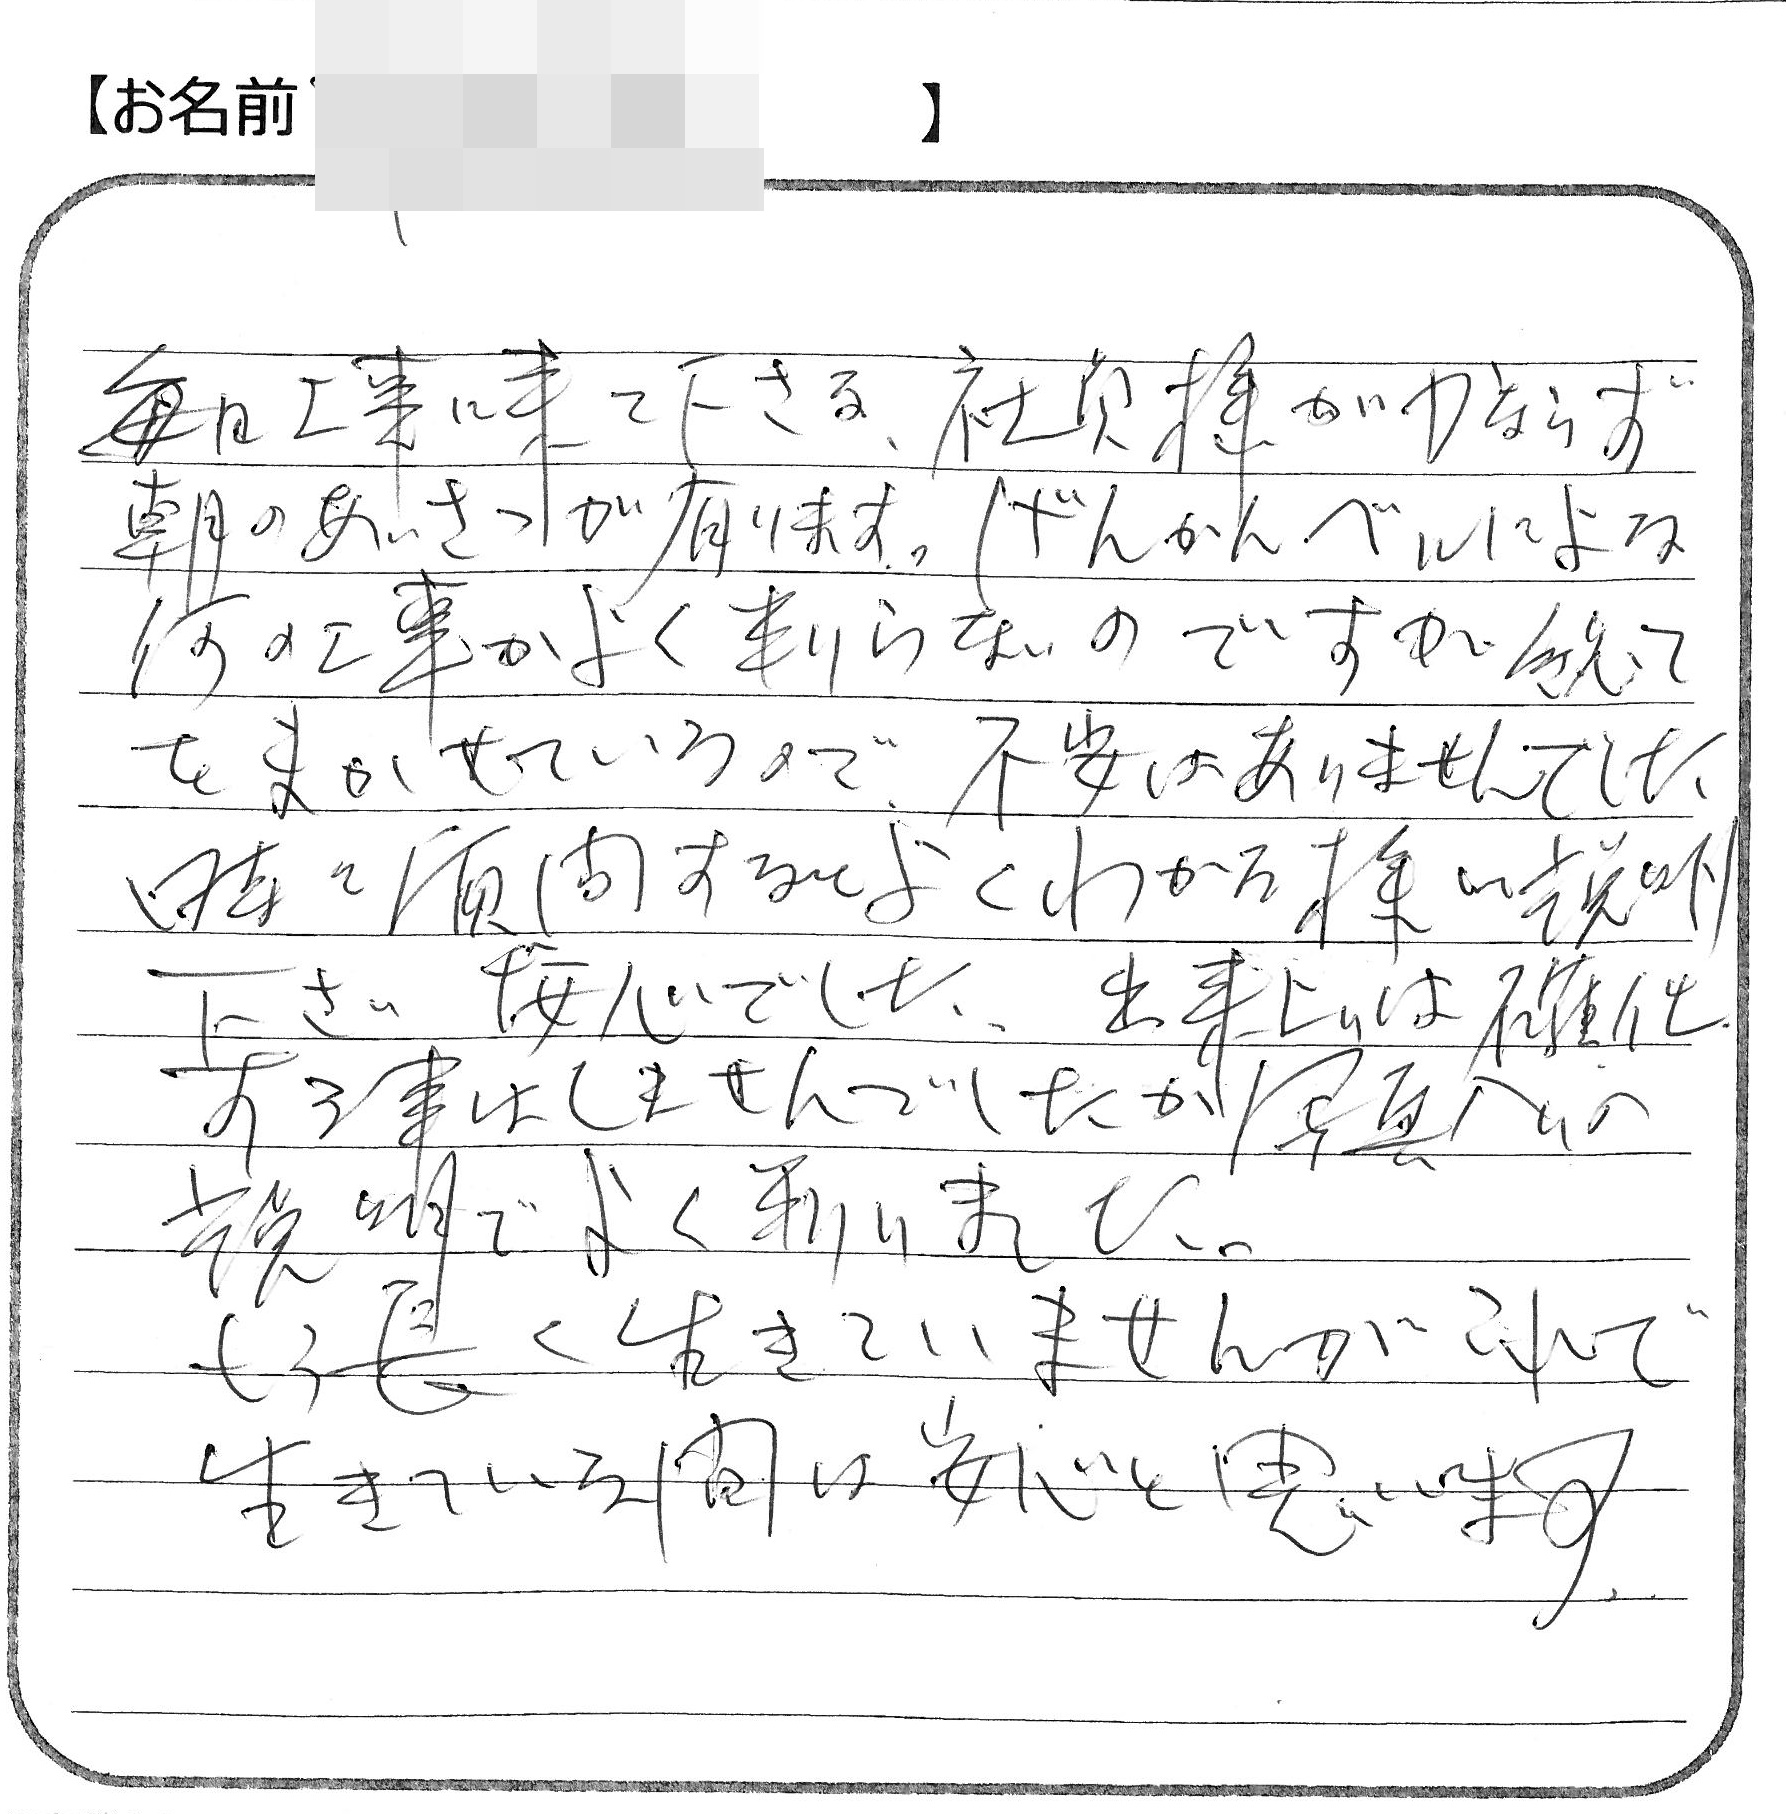 【お名前 】
毎日工事に来て下さる、社員様がかならず
朝のあいさつが有ります。げんかんベルによる
何の工事かよく判らないのですが総て
をまかせているので、不安はありませんでした、
時々質問するとよくわかる様に説明
下さい 安心でした、出来上りは確他
する事はしませんでしたが写真への
説明でよく判りました。
もう長く生きていませんがこれで
生きている間は安心と思います